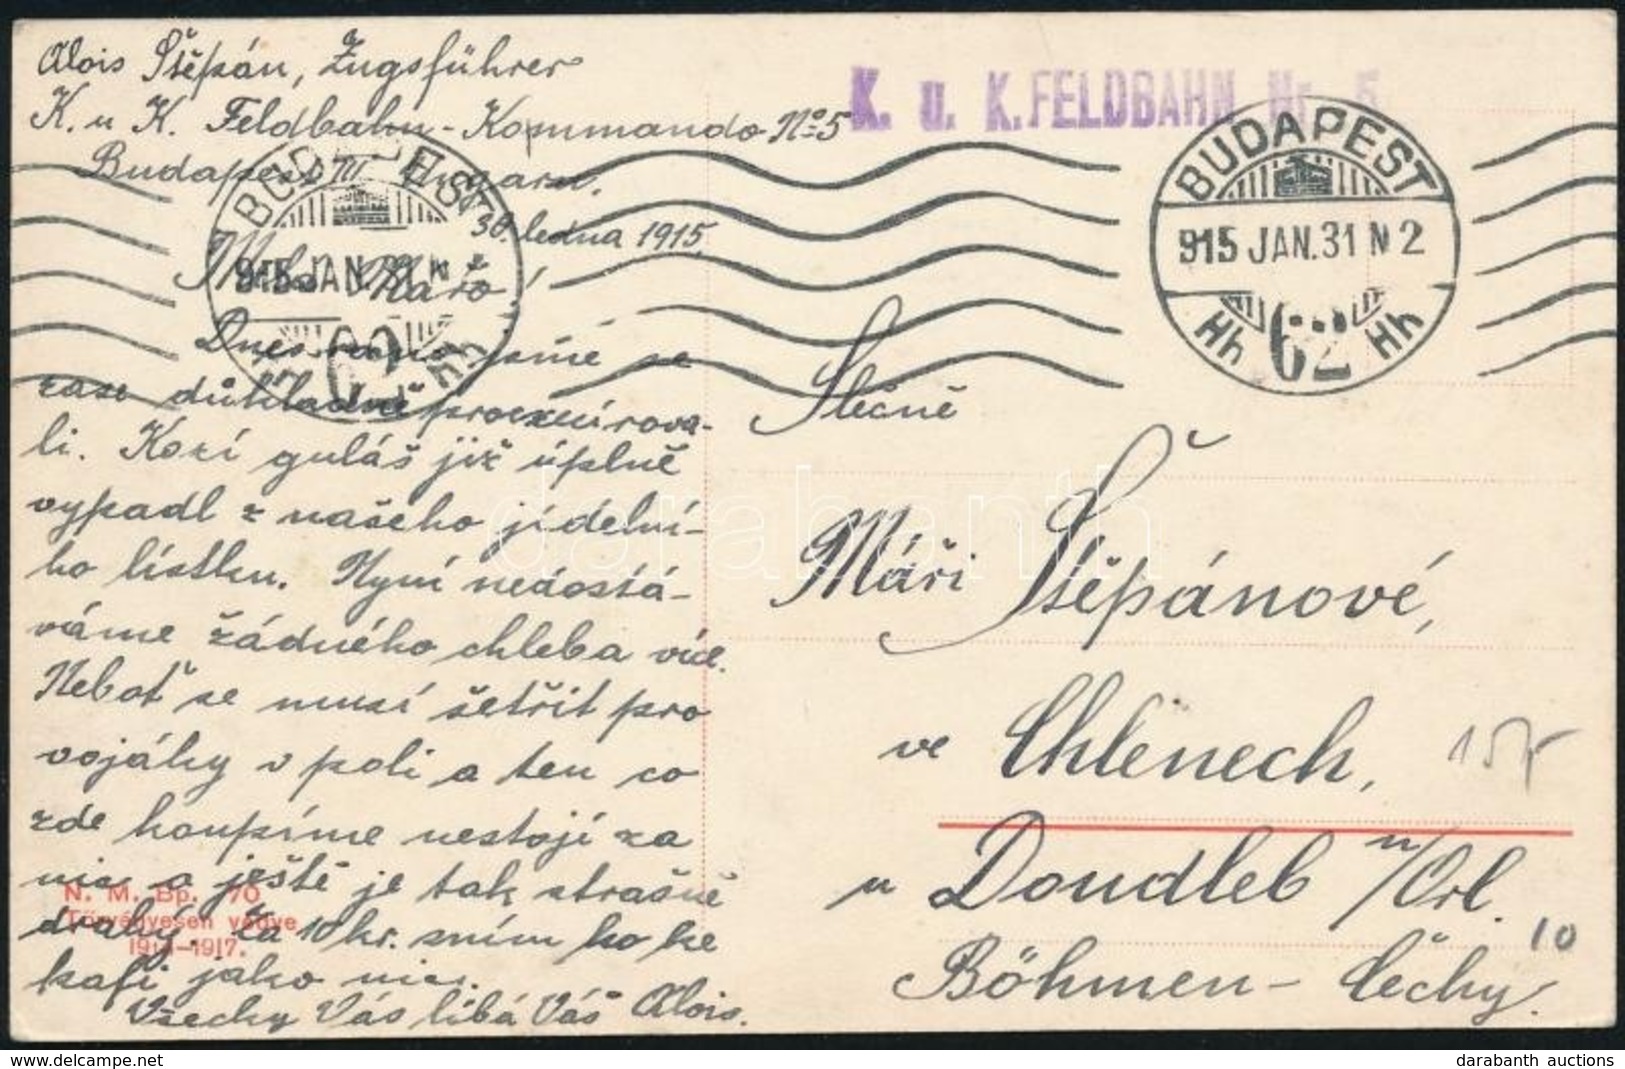 Alois Štěpán, Zugsführer
K. u K. Feldbahn-Kommando No 5
Budapest III Ungarn.
30. ledna 1915.
Milá Máňo!
Dnes ráno jsme se
zase důkladně proexecírova-
li. Kozí guláš již úplně
vypadl z našeho jídelní-
ho lístku. Nyní nedostá-
váme žádného chleba více.
Neboť se musí šetřit pro
vojáky v poli a ten co
zde koupíme nestojí za
nic a ještě je tak strašně
drahý. Za 10 kr. sním ho ke
kafi jako nic.
Všecky Vás líbá Váš Alois.
N. M. Bp. 70
Törvényesen védve
1914-1917.
K. u. K. FELDBAHN Nr. 5
BUDAPEST
915 JAN. 31 N 2
Hh 62 Hh
BUDAPEST
915 JAN. 31 N 2
62 Hh
Slečně
Máři Štěpánové,
ve Chlenech,
u Doudleb n/Orl.
Böhmen - Čechy.
157
10
darabanth
darabanth auctions